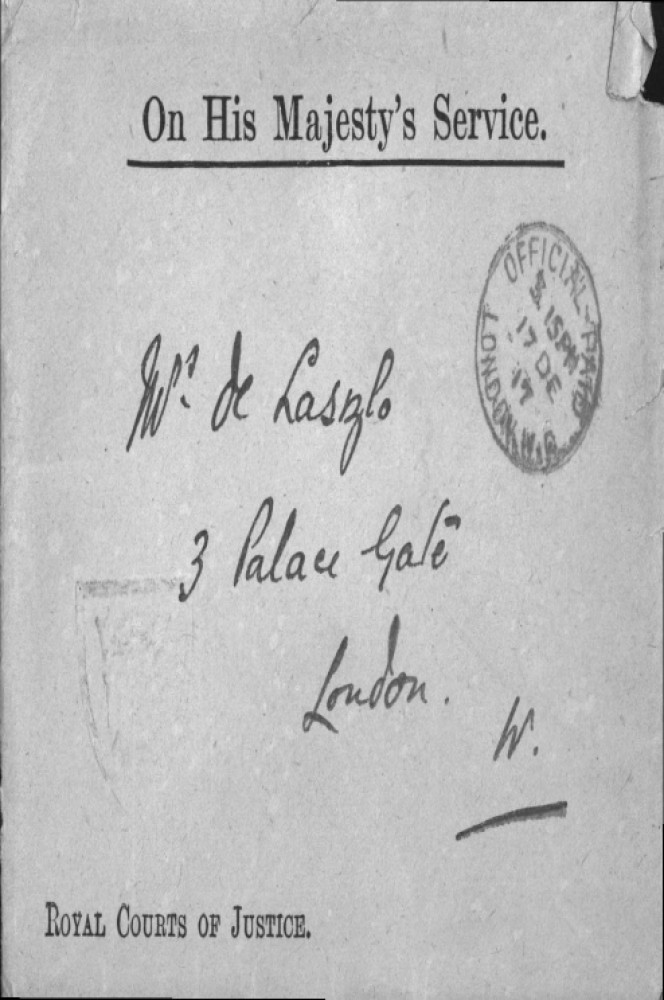 On His Majesty's Service.
OFFICIAL-PAID
LONDON. W.
15PM
17 DE
17
Mrs. de Laszlo
3 Palace Gate
London.
W.
ROYAL COURTS OF JUSTICE.